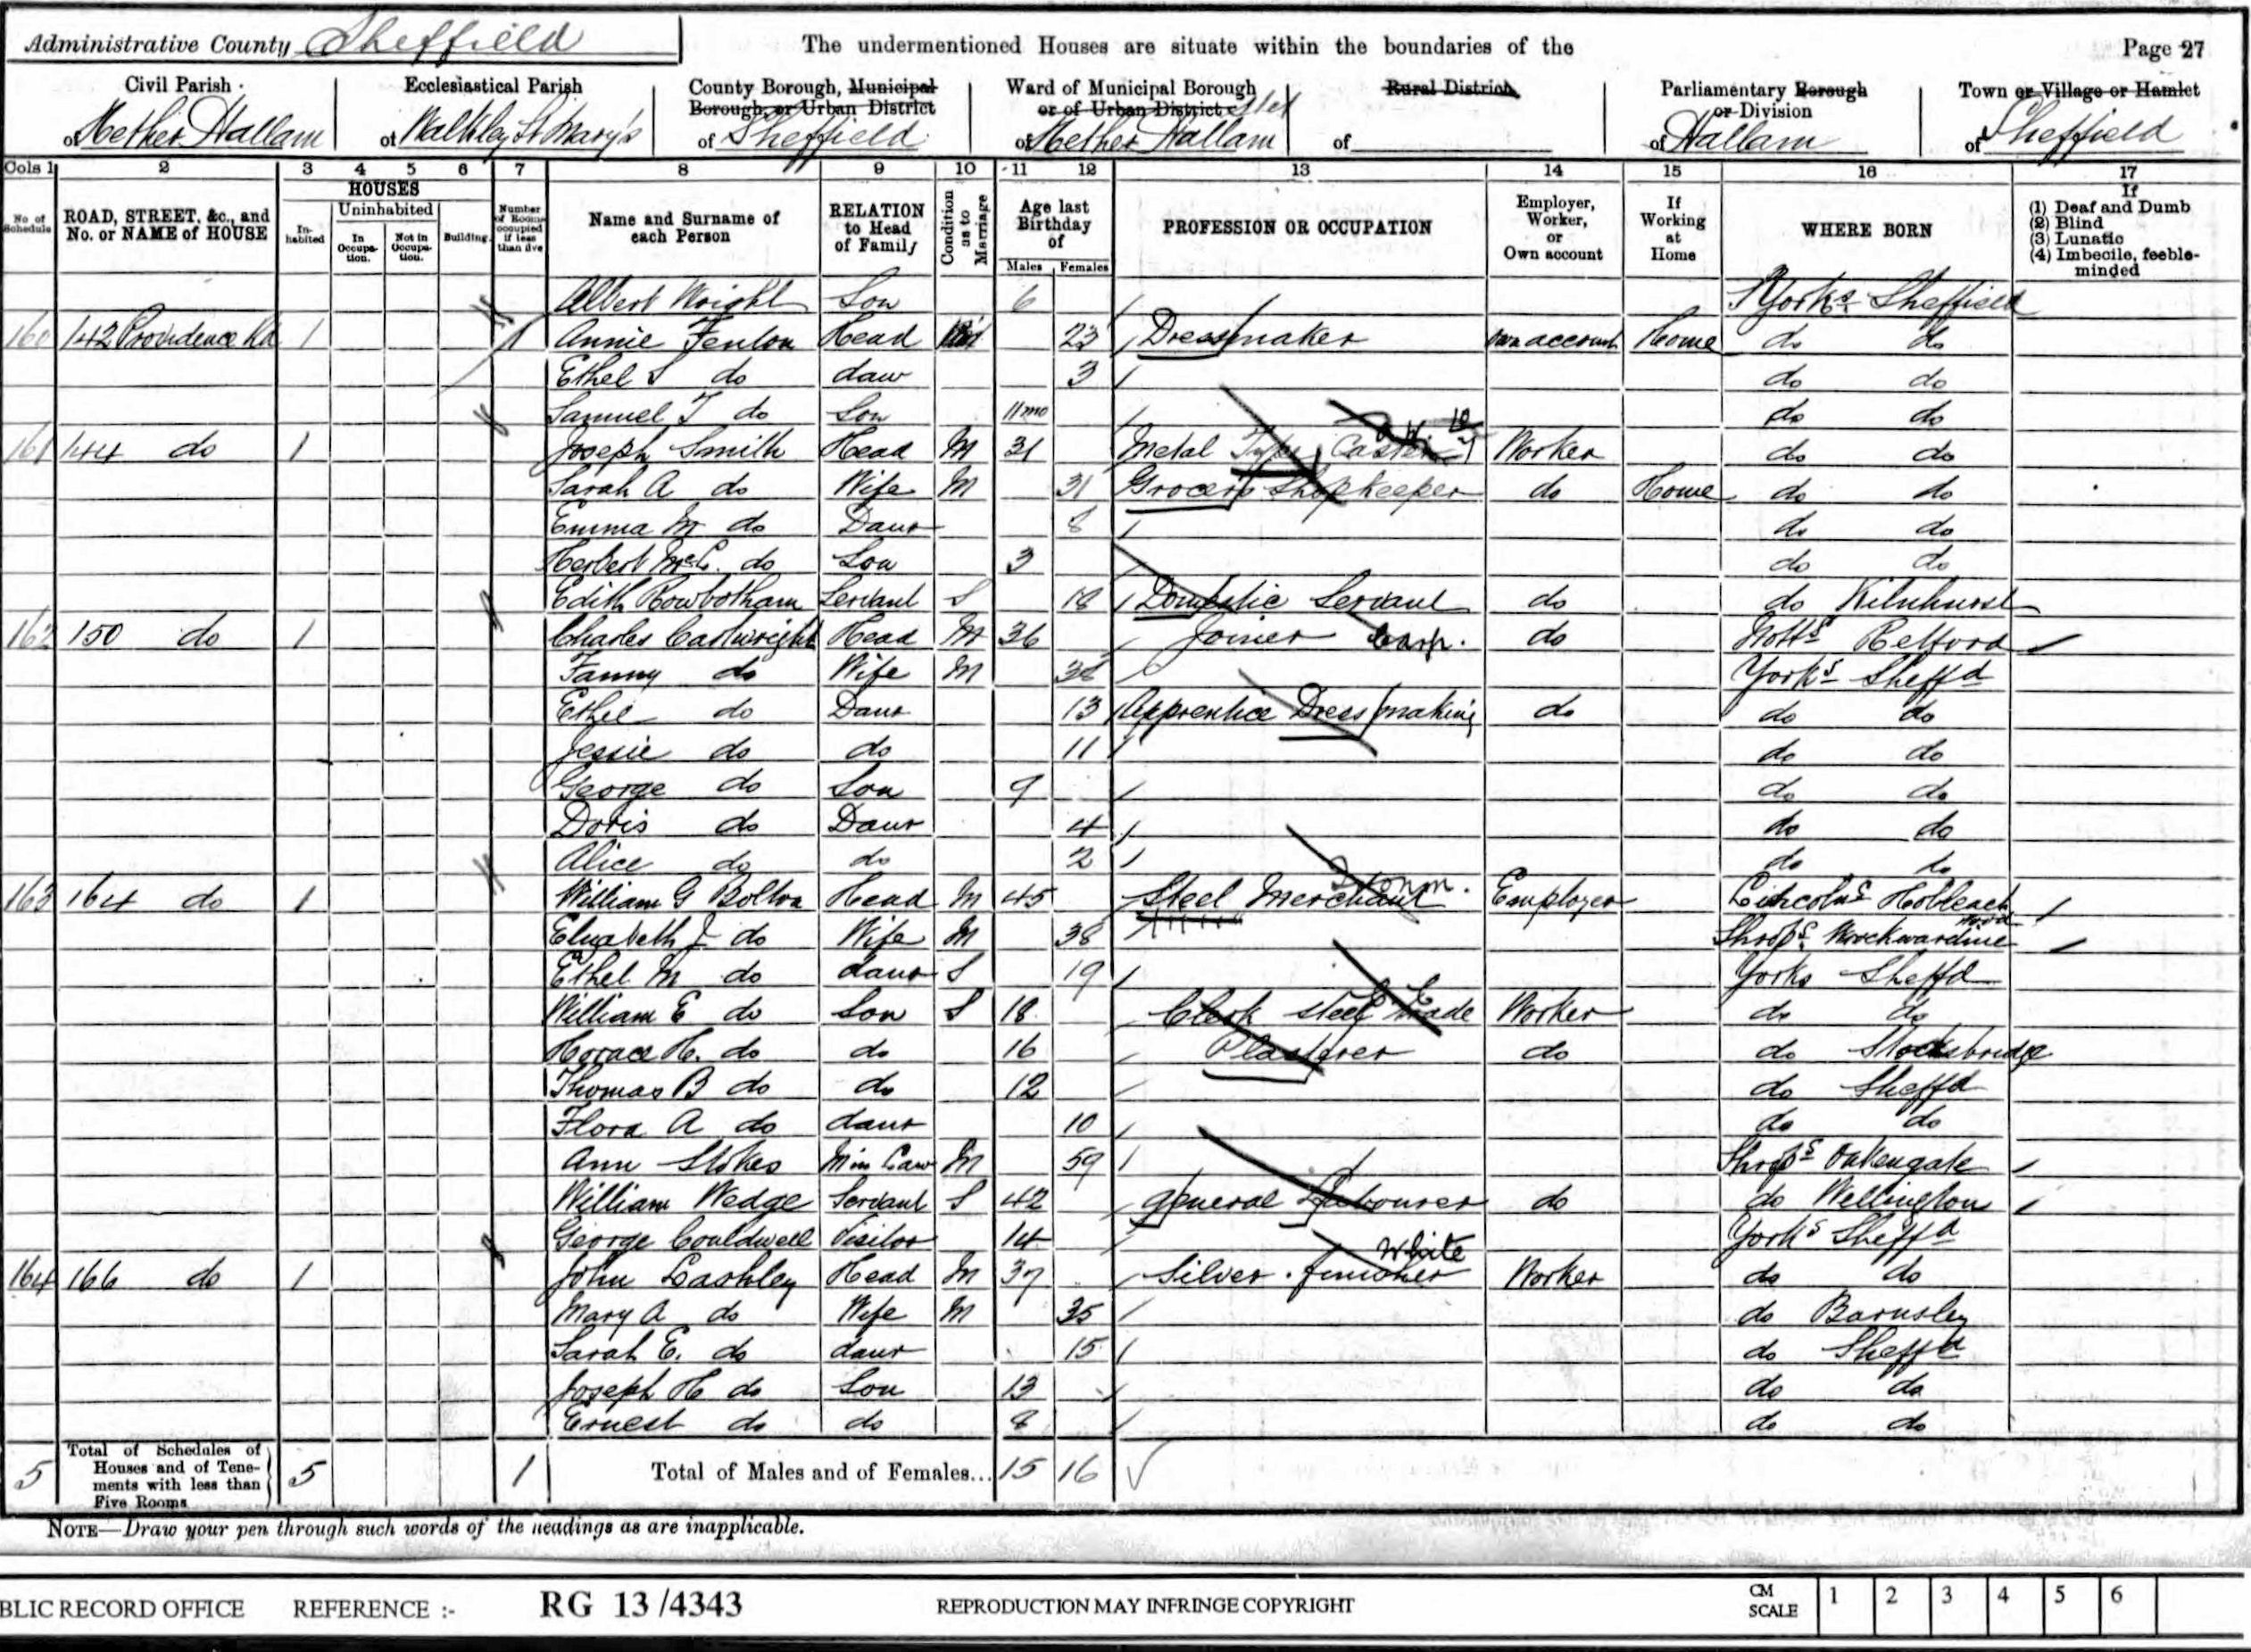 Administrative County Sheffield The undermentioned Houses are situate within the boundaries of the Page 27
Civil Parish Ecclesiastical Parish County Borough, Municipal Borough, or Urban District Ward of Municipal Borough or of Urban District Rural District Parliamentary Borough or Division Town or Village or Hamlet
of Nether Hallam of Walkley St Mary's of Sheffield of Nether Hallam of of Hallam of Sheffield
Cols 1 2 3 4 5 6 7 8 9 10 11 12 13 14 15 16 17
No of Schedule ROAD, STREET, &c., and No. or NAME of HOUSE HOUSES Inhabited Uninhabited In Occupation. Not in Occupation. Building. Number of Rooms occupied if less than five Name and Surname of each Person RELATION to Head of Family Condition as to Marriage Age last Birthday of Males Females PROFESSION OR OCCUPATION Employer, Worker, or Own account If Working at Home WHERE BORN If (1) Deaf and Dumb (2) Blind (3) Lunatic (4) Imbecile, feeble-minded
Albert Wright Son 6 Yorks Sheffield
160 142 Providence Rd 1 Annie Fenton Head 23 Dressmaker own account Home do do
Ethel S do daur 3 do do
Samuel T do Son 11mo do do
161 144 do 1 Joseph Smith Head M 31 Metal Type Caster Worker do do
Sarah A do Wife M 31 Grocers Shopkeeper do Home do do
Emma M do Daur 8 do do
Herbert McL. do Son 3 do do
Edith Rowbotham Servant S 18 Domestic Servant do do Kilnhurst
162 150 do 1 Charles Cartwright Head M 36 Joiner Carp. do Notts Retford
Fanny do Wife M 38 Yorks Sheffd
Ethel do Daur 13 Apprentice Dress making do do do
Jessie do do 11 do do
George do Son 9 do do
Doris do Daur 4 do do
Alice do do 2 do do
163 164 do 1 William G Bolton Head M 45 Steel Merchant Employer Lincolns Holbeach
Elizabeth J do Wife M 38 Shrops Wrockwardine Wood
Ethel M do daur S 19 Yorks Sheffd
William E do Son S 18 Clerk Steel Trade Worker do do
Horace H. do do 16 Plasterer do do Stocksbridge
Thomas B do do 12 do Sheffd
Flora A do daur 10 do do
Ann Stokes M in Law M 59 Shrops Oakengate
William Wedge Servant S 42 general Labourer do do Wellington
George Couldwell Visitor 14 Yorks Sheffd
164 166 do 1 John Lashley Head M 37 Silver finisher White Worker do do
Mary A do Wife M 35 do Barnsley
Sarah E. do daur 15 do Sheffd
Joseph H do Son 13 do do
Ernest do do 8 do do
5 Total of Schedules of Houses and of Tenements with less than Five Rooms 5 1 Total of Males and of Females... 15 16
NOTE—Draw your pen through such words of the headings as are inapplicable.
BLIC RECORD OFFICE REFERENCE :- RG 13/4343 REPRODUCTION MAY INFRINGE COPYRIGHT CM SCALE 1 2 3 4 5 6